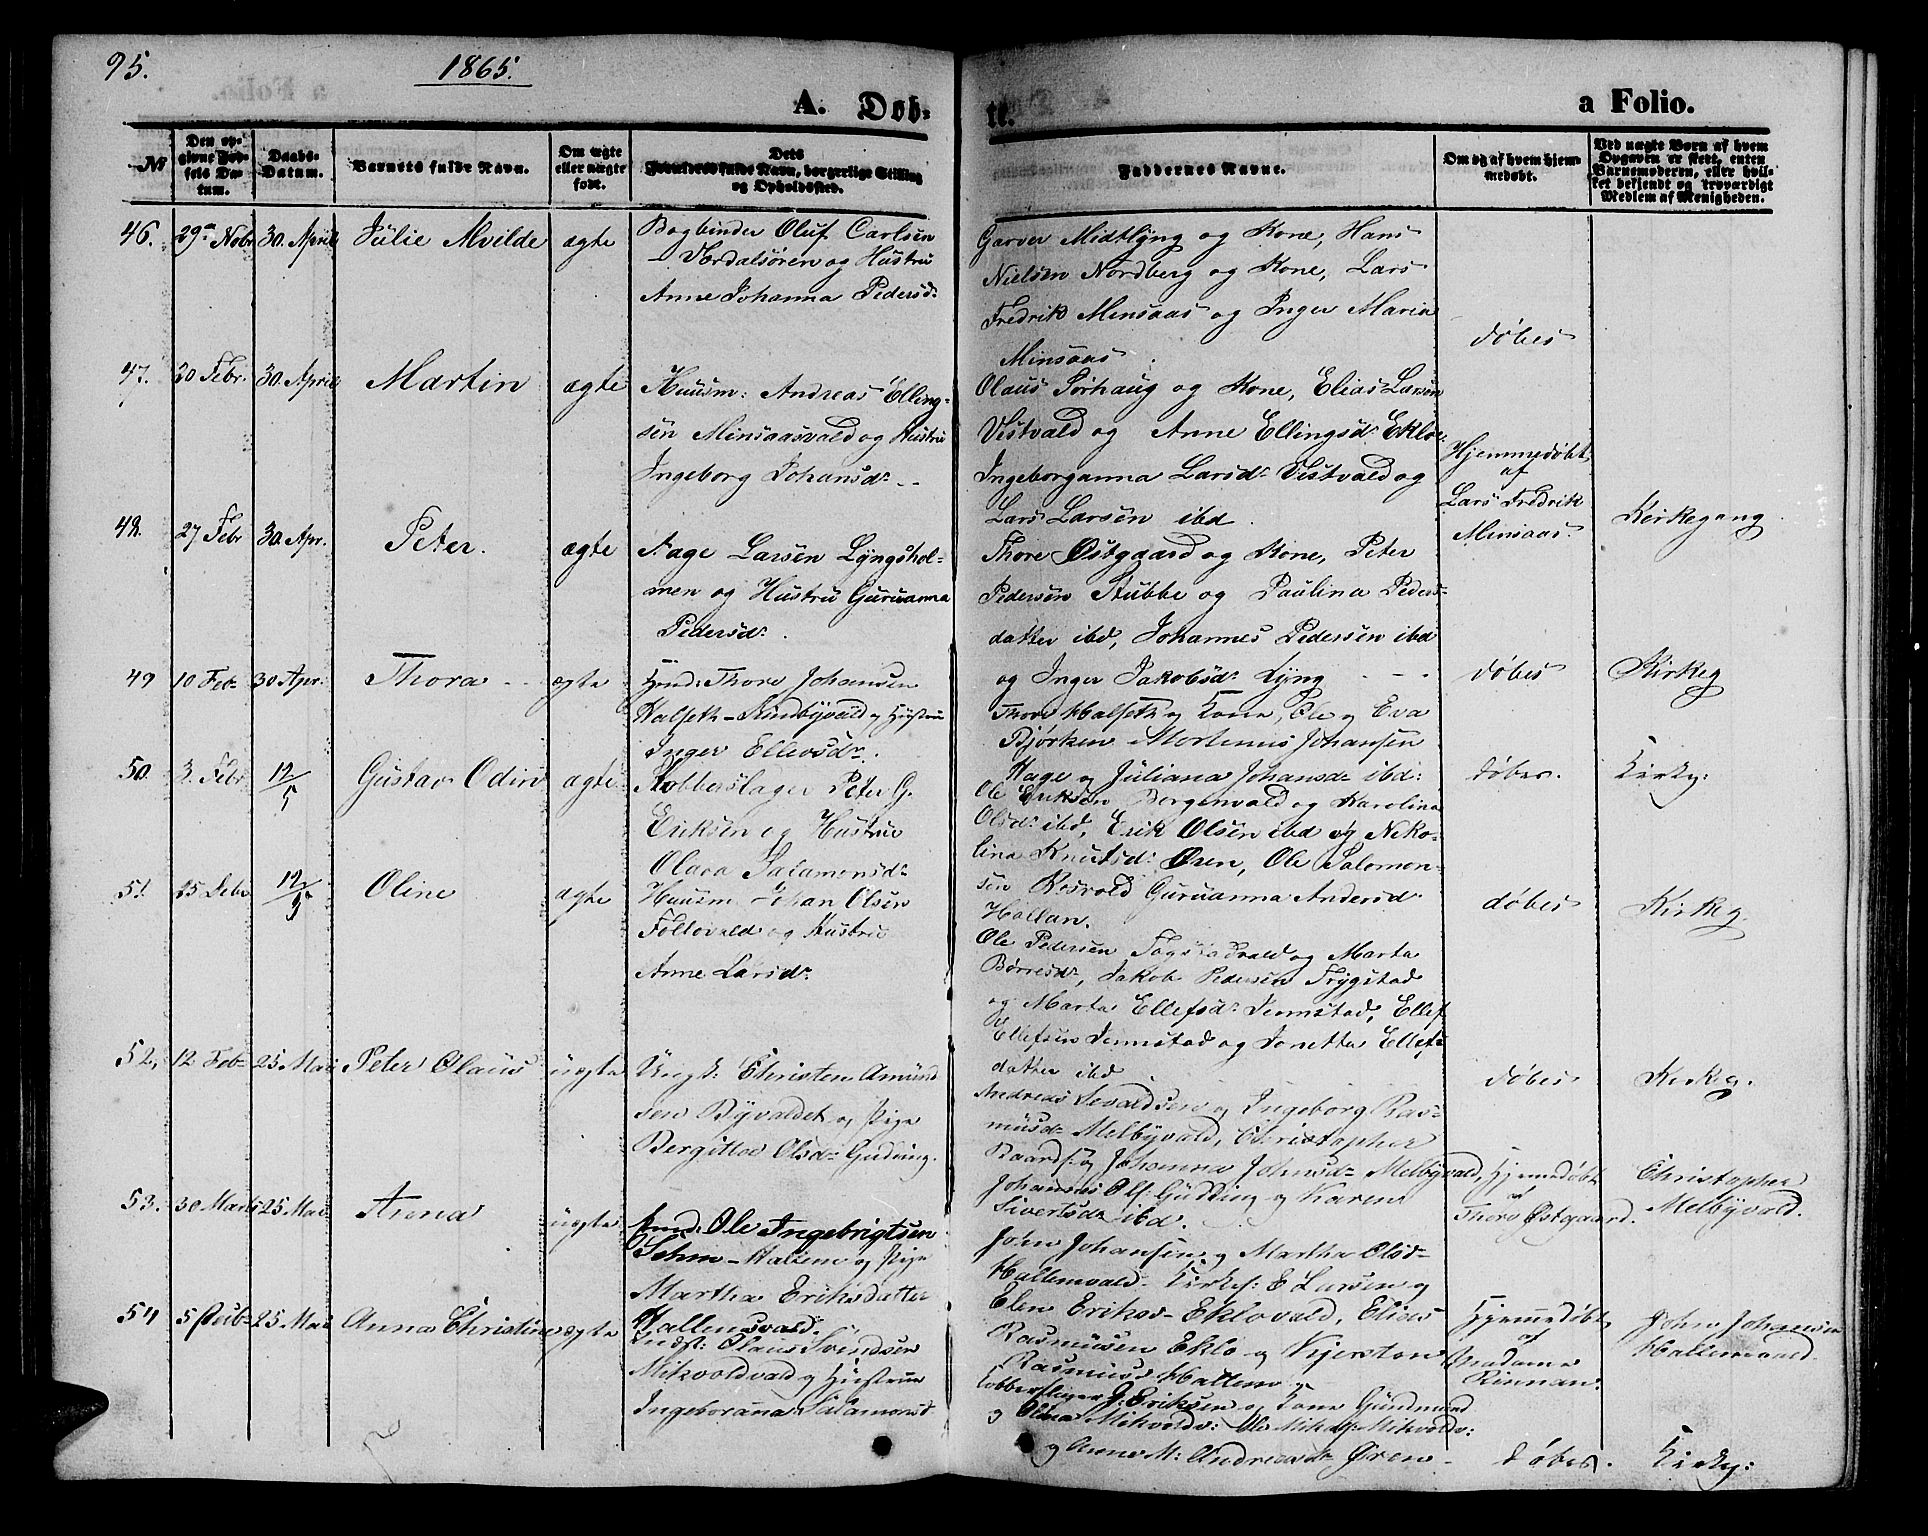 95.
1865.
A. Døb-
te.
a Folio.
№
Den op-
givne Fød-
sels Da-
tum.
Daabs-
Datum.
Barnets fulde Navn.
Om ægte
eller uægte
født.
Dets
Forældres fulde Navn, borgerlige Stilling
og Opholdssted.
Faddernes Navne.
Om og af hvem hjem-
medøbt.
Ved uægte Børn af hvem
Opgaven er skeet, enten
Barnemoderen, eller hvil-
ket bekjendt og troværdigt
Medlem af Menigheden.
46. 29de Novbr 30. April Julie Alvilde ægte
Bogbinder Oluf Carlsen
Værdalsøren og Hustru
Anne Johanna Pedersd:
Garver Midtlyng og Kone, Hans
Nielsen Nordberg og Kone, Lars
Fredrik Minsaas og Inger Maria
Minsaas.
døbes
47. 20 Febr. 30. April Martin ægte
Huusm: Andreas Elling-
sen Minsaasvald og Hustru
Ingeborg Johansd:
Olaus Sørhaug og Kone, Elias Larsen
Vestvald og Anne Ellingsd: Eklo
Ingeborganna Larsd: Vestvald og
Lars Larsen ibd.
Hjemmedøbt
af
Lars Fredrik
Minsaas.
Kirkegang.
48. 27 Febr 30. Apr. Peter. ægte
Aage Larsen Lyngshol-
men og Hustru Guruanna
Pedersd:.
Thore Østgaard og Kone, Peter
Pedersen Stubbe og Paulina Peders-
datter ibd, Johannes Pedersen ibd
og Inger Jakobsd: Lyng
døbes
Kirkeg
49 10 Feb- 30 Apr. Thora ægte
Gmd: Thore Johansen
Halseth-Lundbyvald og Hustru
Inger Ellevsd:.
Thore Halseth og Kone, Ole og Eva
Bjørken Mortenus Johansen
Hage og Juliana Johansd: ibd:
døbes.
Kirkg:
50. 3. Febr 12/5 Gustav Odin ægte
Kobberslager Peter G.
Eriksen og Hustru
Olava Salamonsd:
Ole Eriksen Borgenvald og Karolina
Olsd: ibd, Erik Olsen ibd og Niko-
lina Knutsd: Øren, Ole Salomon-
sen Rosvold Guruanna Andersd
Hallan.
døbes
Kirkeg.
51. 25 Febr 12/5 Oline ægte
Huusm Johan Olsen
Follovald og Hustru
Anne Larsd:
Ole Pedersen Fagstadvald og Marta
Børresd:, Jakob Pedersen Trygstad
og Marta Ellefsd: Jermstad, Ellef
Ellefsen Jermstad og Jonetta Ellefs-
datter ibd
døbes
Kirkeg.
52, 12 Feb- 25 Mai Peter Olaus uægte
Ungk: Christen Amund
sen Byvaldet og Pige
Bergitta Olsd: Gudding.
Andreas Sevaldsen og Ingeborg Ras-
musd: Melbyvald, Christopher
Baardss: og Johanna Johnsd: Melbyvald,
Johannes Ols: Gudding og Karen
Sivertsd: ibd.
Hjemedøbt
af
Thore Østgaard.
Christopher
Melbyvald.
53. 30 Marts 25 Mai Anna uægte
Gmd: Ole Ingebrigtsen
Sehm-Halsen og Pige
Martha Eriksdatter
Hallemsvald.
John Johansen og Martha Olsd-
Hallemvald- Kirkes: E Larsen og
Elen Eriksd- Eklovald, Elias
Rasmusen Eklo og Kjersten
Rasmusd Hallem
Hjemmedøbt
af
Madame
Rinnan.
John Johansen
Hallemvald.
54, 5 Febr 25 Mai Anna Christine ægte
Indst: Olaus Svendsen
Mikvoldvald og Hustrue
Ingeborana Salamonsd
Kobberslager J: Eriksen og Kone Gundmund
og Olina Mikvoldv: Ole Mikals: Mikvoldv:
og Anne M: Andreasd Øren
døbes.
Kirkg: